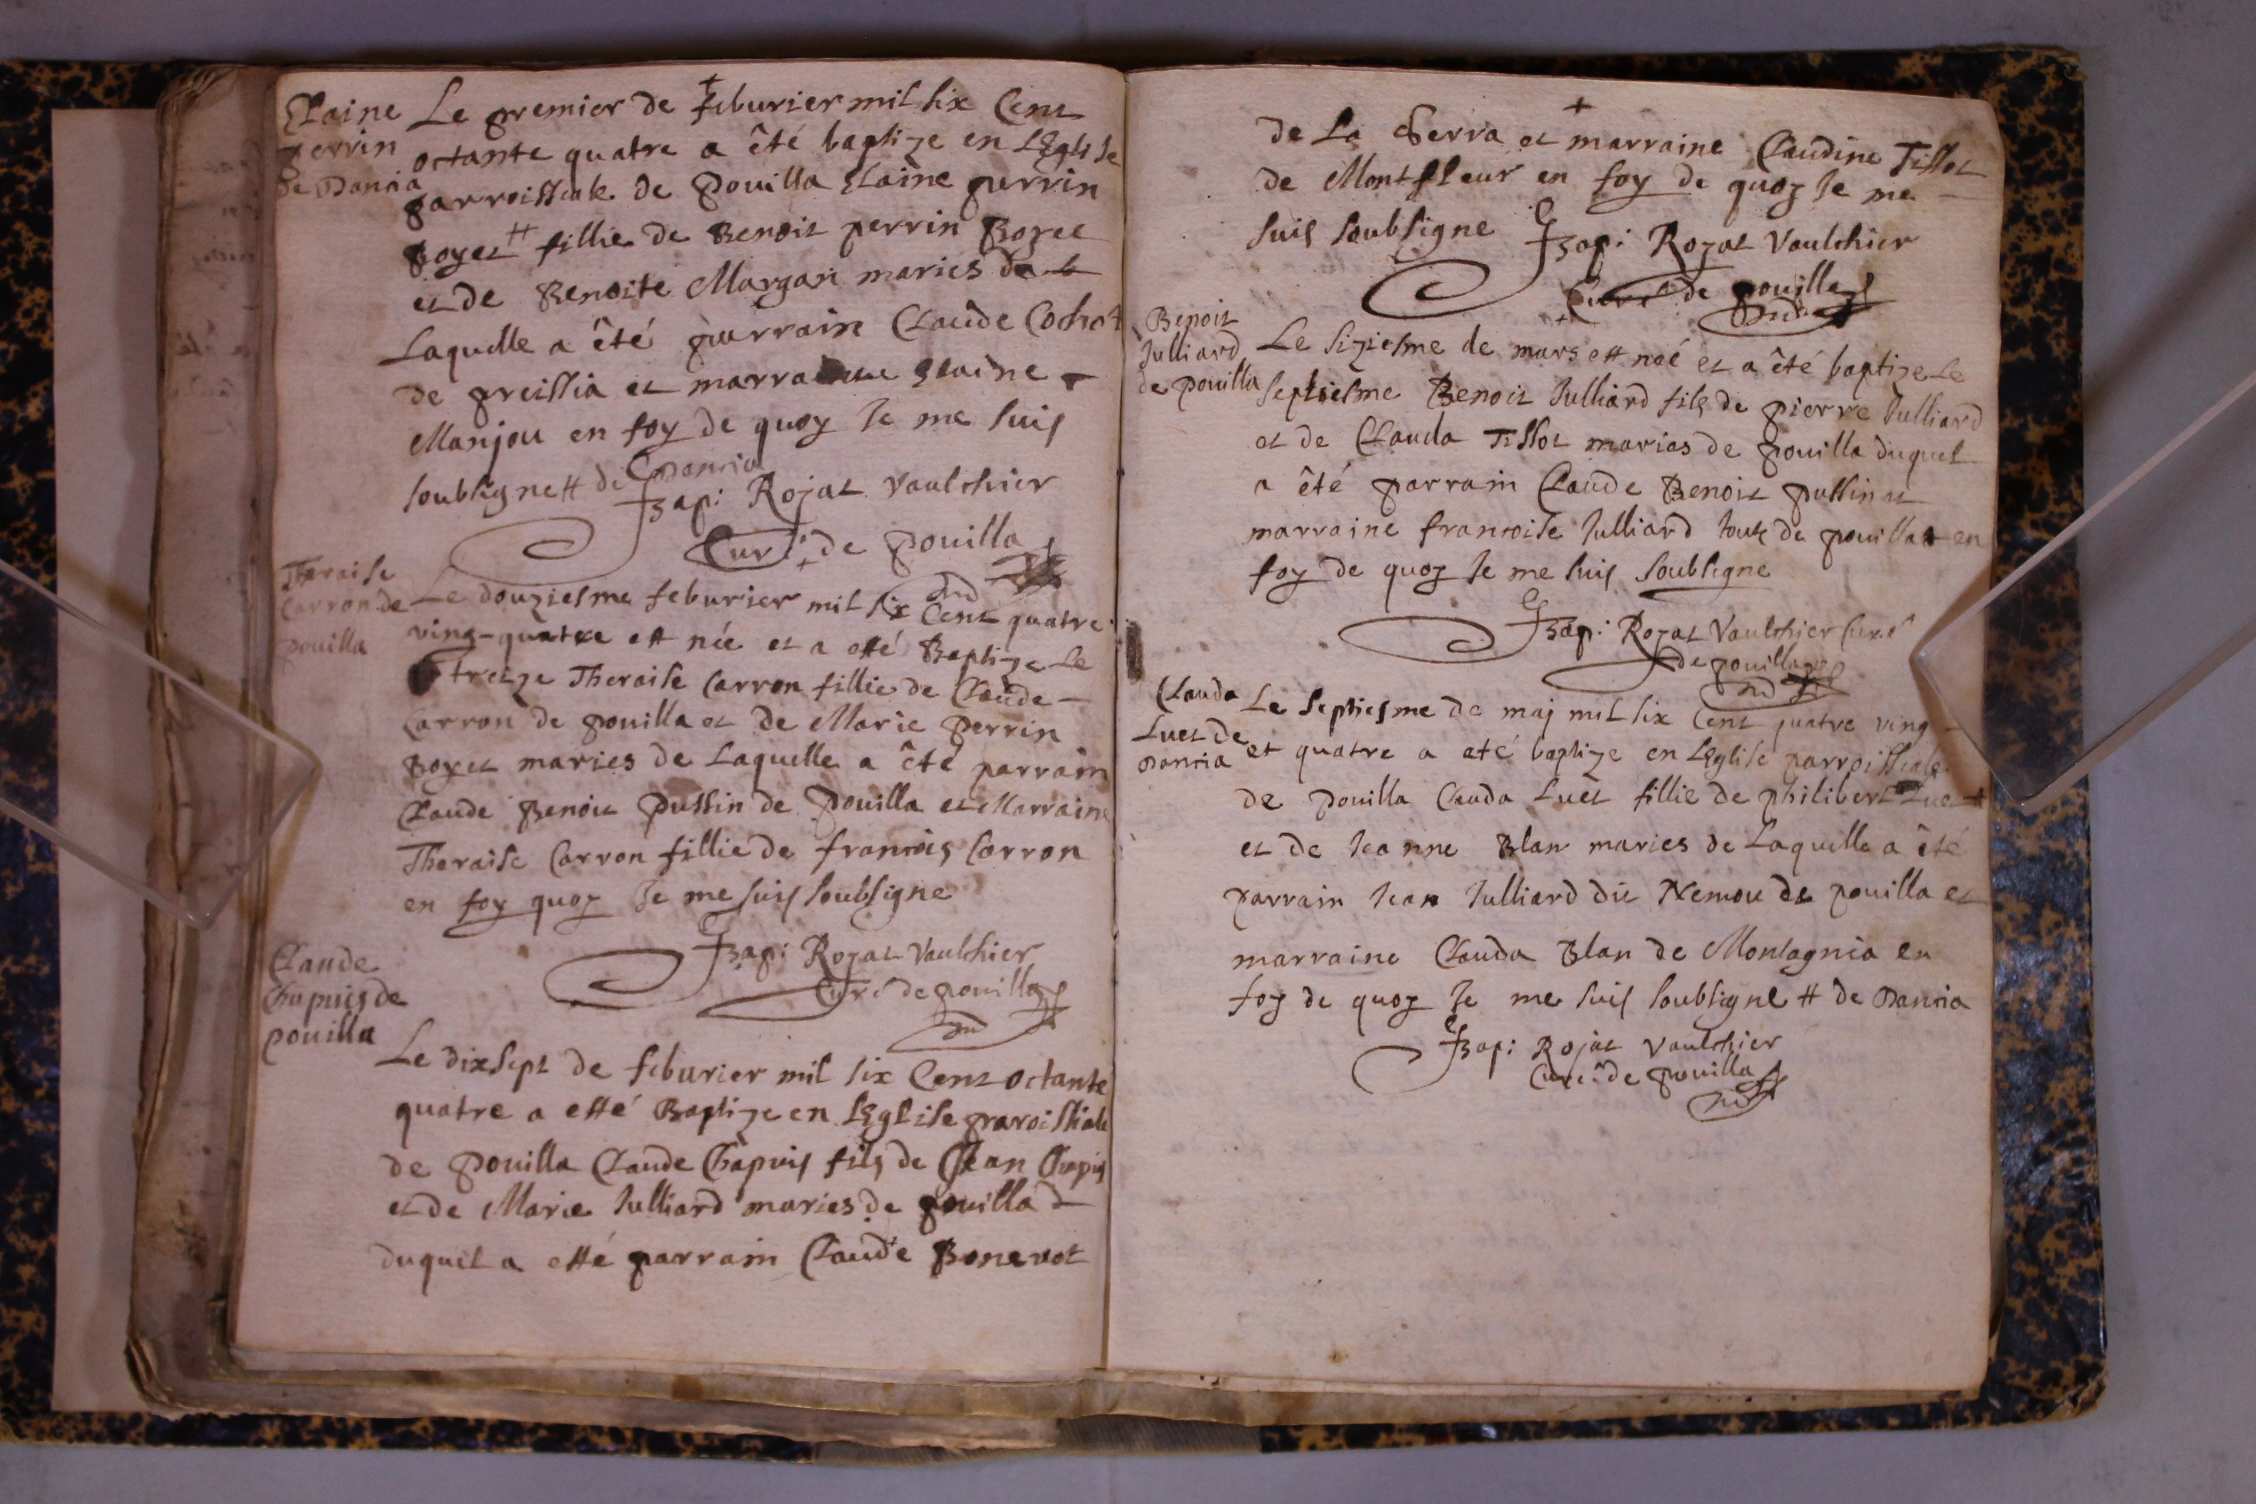 Claine
perrin
de Dancia
Le premier de feburier mil six Cent
octante quatre a êté baptize en LEglise
parroissiale de pouilla Claine perrin
poyet # fillie de Benoit perrin Boyet
et de Benoite Morgan maries de
Laquelle a êté parrain Claude Cochet
de greissia et marraine Claine
Manjou en foy de quoy Je me suis
soubsigne # de Dancia
Bapt: Rojat Vaulchier
Curé de pouilla
Theraise
Carron de
pouilla
Le douziesme feburier mil six Cent quatre
ving-quatre est née et a esté Baptize Le
treize Theraise Carron fillie de Claude
Carron de pouilla et de Marie perrin
Boyet maries de Laquelle a êté parrain
Claude Benoit Pussin de Pouilla et Marraine
Theraise Carron fillie de francois Carron
en foy quoy Je me suis soubsigne
Bapt: Rojat Vaulchier
Curé de pouilla
Claude
Chapuis de
pouilla
Le dixsept de feburier mil six Cent octante
quatre a esté Baptize en LEglise paroissiale
de Pouilla Claude Chapuis fils de Jean Chapuis
et de Marie Julliard maries de pouilla
duquel a esté parrain Claude Bonevot
de La Serra et marraine Claudine Tissot
de Montfleur en foy de quoy Je me
suis soubsigne
Bapt: Rojat Vaulchier
Curé de pouilla
Benoit
Julliard
de pouilla
Le siziesme de mars est naé et a êté baptize Le
septiesme Benoit Julliard fils de pierre Julliard
et de Clauda Tissot marias de pouilla duquel
a êté parrain Claude Benoit pussin et
marraine francoise Julliard touts de pouilla en
foy de quoy Je me suis soubsigne
Bapt: Rojat Vaulchier Curé
de pouilla
Clauda
Luet de
Dancia
Le septiesme de maj mil six Cent quatre ving
et quatre a été baptize en LEglise parroissiale
de Pouilla Clauda Luet fillie de philibert Luet #
et de Jeanne Blan maries de Laquelle a êté
parrain Jean Julliard dit Nemou de pouilla et
marraine Clauda Blan de Montagnia en
foy de quoy Je me suis soubsigne # de Dancia
Bapt: Rojat Vaulchier
Curé de pouilla